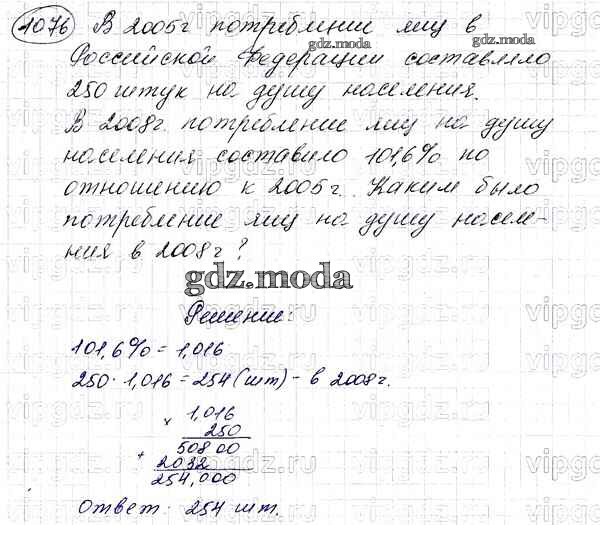 1076 В 2005г потребление яиц в
Российской Федерации составляло
250 штук на душу населения.
В 2008г. потребление яиц на душу
населения составило 101,6% по
отношению к 2005г. Каким было
потребление яиц на душу населе-
ния в 2008г?
gdz.moda
Решение:
101,6% = 1,016
250 · 1,016 = 254 (шт) - в 2008г.
× 1,016
250
50800
+ 2032
254,000
Ответ: 254 шт.